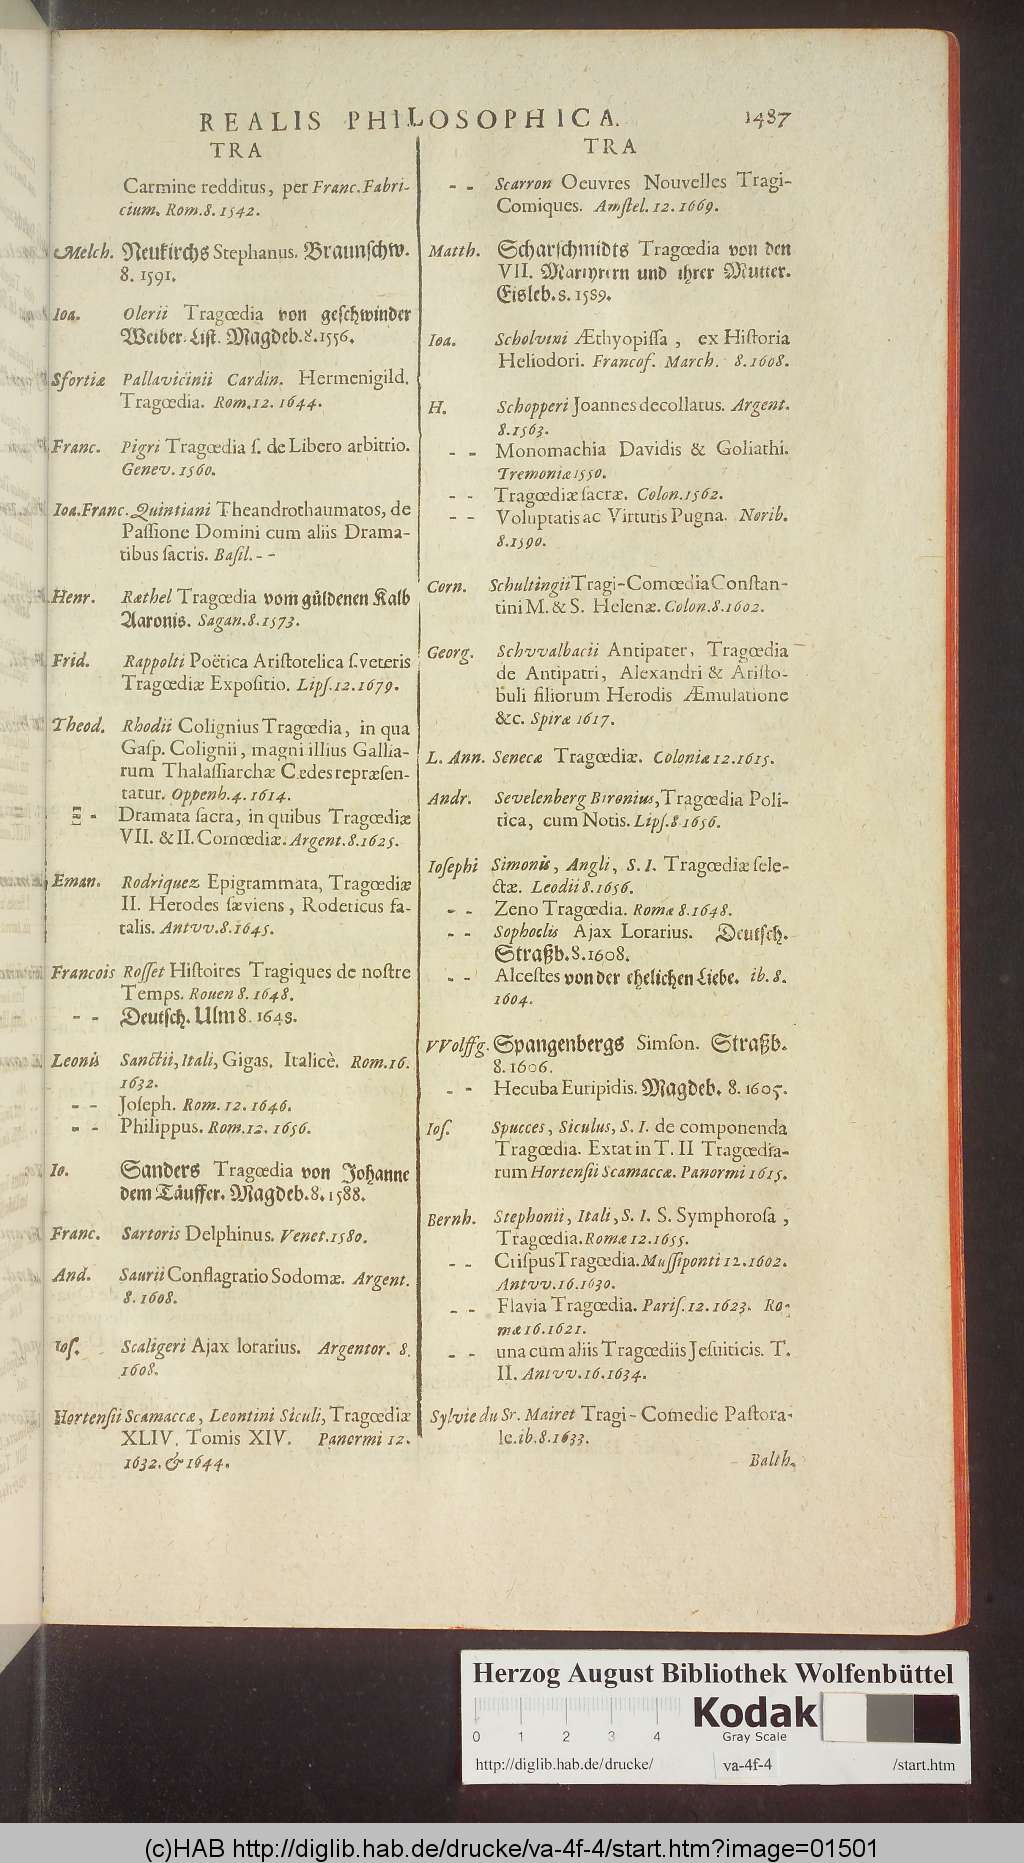 REALIS PHILOSOPHICA. 1487
TRA
Carmine redditus, per Franc. Fabri-
cium. Rom. 8. 1542.
Melch. Neukirchs Stephanus. Braunſchw.
8. 1591.
Ioa. Olerii Tragœdia von geſchwinder
Weiber-Liſt. Magdeb. 8. 1556.
Sfortiæ Pallavicinii Cardin. Hermenigild.
Tragœdia. Rom. 12. 1644.
Franc. Pigri Tragœdia ſ. de Libero arbitrio.
Genev. 1560.
Ioa. Franc. Quintiani Theandrothaumatos, de
Paſſione Domini cum aliis Drama-
tibus ſacris. Baſil. - -
Henr. Ræthel Tragœdia vom gůldenen Kalb
Aaronis. Sagan. 8. 1573.
Frid. Rappolti Poëtica Ariſtotelica ſ. veteris
Tragœdiæ Expoſitio. Lipſ. 12. 1679.
Theod. Rhodii Colignius Tragœdia, in qua
Gaſp. Colignii, magni illius Gallia-
rum Thalaſſiarchæ Cædes repræſen-
tatur. Oppenh. 4. 1614.
- - Dramata ſacra, in quibus Tragœdiæ
VII. & II. Comœdiæ. Argent. 8. 1625.
Eman. Rodriquez Epigrammata, Tragœdiæ
II. Herodes ſæviens, Rodericus fa-
talis. Antvv. 8. 1645.
Francois Roſſet Hiſtoires Tragiques de noſtre
Temps. Rouen 8. 1648.
- - Deutſch. Ulm 8. 1648.
Leonis Sanctii, Itali, Gigas. Italicè. Rom. 16.
1632.
- - Joſeph. Rom. 12. 1646.
- - Philippus. Rom. 12. 1656.
Io. Sanders Tragœdia von Johanne
dem Täuffer. Magdeb. 8. 1588.
Franc. Sartoris Delphinus. Venet. 1580.
And. Saurii Conflagratio Sodomæ. Argent.
8. 1608.
Ioſ. Scaligeri Ajax lorarius. Argentor. 8.
1608.
Hortenſii Scamaccæ, Leontini Siculi, Tragœdiæ
XLIV. Tomis XIV. Panormi 12.
1632. & 1644.
TRA
- - Scarron Oeuvres Nouvelles Tragi-
Comiques. Amſtel. 12. 1669.
Matth. Scharſchmidts Tragœdia von den
VII. Martyrern und ihrer Mutter.
Eisleb. 8. 1589.
Ioa. Scholvini Æthyopiſſa, ex Hiſtoria
Heliodori. Francof. March. 8. 1608.
H. Schopperi Joannes decollatus. Argent.
8. 1563.
- - Monomachia Davidis & Goliathi.
Tremoniæ 1550.
- - Tragœdiæ ſacræ. Colon. 1562.
- - Voluptatis ac Virtutis Pugna. Norib.
8. 1590.
Corn. Schultingii Tragi-Comœdia Conſtan-
tini M. & S. Helenæ. Colon. 8. 1602.
Georg. Schvvalbacii Antipater, Tragœdia
de Antipatri, Alexandri & Ariſto-
buli filiorum Herodis Æmulatione
&c. Spiræ 1617.
L. Ann. Senecæ Tragœdiæ. Coloniæ 12. 1615.
Andr. Sevelenberg Bironius, Tragœdia Poli-
tica, cum Notis. Lipſ. 8. 1656.
Ioſephi Simonis, Angli, S. I. Tragœdiæ ſele-
ctæ. Leodii 8. 1656.
- - Zeno Tragœdia. Romæ 8. 1648.
- - Sophoclis Ajax Lorarius. Deutſch.
Straßb. 8. 1608.
- - Alceſtes von der ehelichen Liebe. ib. 8.
1604.
VVolffg. Spangenbergs Simſon. Straßb.
8. 1606.
- - Hecuba Euripidis. Magdeb. 8. 1605.
Ioſ. Spucces, Siculus, S. I. de componenda
Tragœdia. Extat in T. II Tragœdia-
rum Hortenſii Scamaccæ. Panormi 1615.
Bernh. Stephonii, Itali, S. I. S. Symphoroſa,
Tragœdia. Romæ 12. 1655.
- - Criſpus Tragœdia. Muſſiponti 12. 1602.
Antvv. 16. 1630.
- - Flavia Tragœdia. Pariſ. 12. 1623. Ro-
mæ 16. 1621.
- - una cum aliis Tragœdiis Jeſuiticis. T.
II. Antvv. 16. 1634.
Sylvie du Sr. Mairet Tragi-Comedie Paſtora-
le. ib. 8. 1633.
Balth.
Herzog August Bibliothek Wolfenbüttel
0 1 2 3 4
Kodak
Gray Scale
http://diglib.hab.de/drucke/ va-4f-4 /start.htm
(c)HAB http://diglib.hab.de/drucke/va-4f-4/start.htm?image=01501